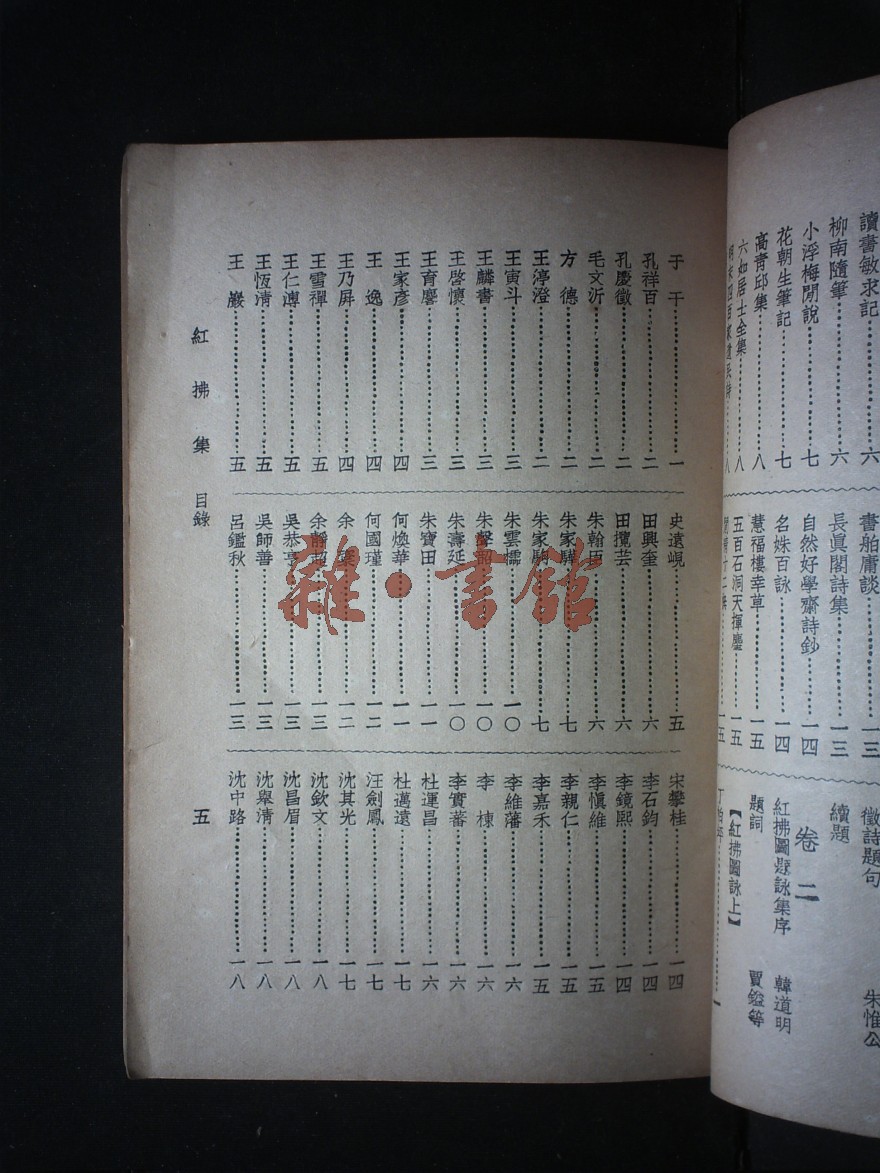 讀書敏求記……六
柳南隨筆……六
小浮梅閒說……七
花朝生筆記……七
高青邱集……八
六如居士全集……八
書舶庸談……一三
長眞閣詩集……一三
自然好學齋詩鈔……一四
名姝百詠……一四
慧福樓幸草……一五
五百石洞天揮麈……一五
徵詩題句 朱惟公
續題
卷二
紅拂圖題詠集序 韓道明
題詞 賈鎰等
【紅拂圖詠上】
于干……一
孔祥百……二
孔慶徵……二
毛文沂……二
方德……二
王渟澄……二
王寅斗……三
王麟書……三
王啓懷……三
王育麐……三
王家彥……四
王逸……四
王乃屏……四
王雪禪……五
王仁溥……五
王恆清……五
王巖……五
史遠峴……五
田興奎……六
田攬芸……六
朱翰臣……六
朱家驊……七
朱家駒……七
朱雲襦……一〇
朱聲韶……一〇
朱壽延……一〇
朱寶田……一一
何煥華……一一
何國瑾……一二
余……一二
余靜超……一三
吳恭亨……一三
吳師善……一三
呂鑑秋……一三
宋攀桂……一四
李石鈞……一四
李鏡熙……一四
李愼維……一五
李親仁……一五
李嘉禾……一五
李維藩……一六
李棟……一六
李實蕃……一六
杜運昌……一六
杜邁遠……一七
汪劍鳳……一七
沈其光……一七
沈欽文……一八
沈昌眉……一八
沈舉清……一八
沈中路……一八
紅拂集 目錄 五
雜·書館